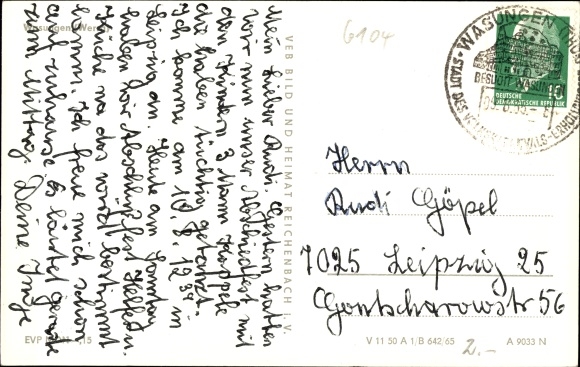 Wasungen (Werra)
Mein lieber Rudi! Gestern hatten
wir nun unser Abschiedsfest mit
den Kindern 3 Mann Kapelle
die haben tüchtig getanzt.
Ich komme am 10.8. 12 39 in
Leipzig an. Heute am Sonntag
haben wir Abschlußfest Helfedn.
Küche na das wird bestimmt
komm. Ich freue mich schon
auf zuhause. Es läutet gerade
zum Mittag Deine Inge
EVP
15
VEB BILD UND HEIMAT REICHENBACH i. V.
G104
WASUNGEN (THÜR
STADT DES
DEUTSCHE
DEMOKRATISCHE REPUBLIK
10
Herrn
Rudi Göpel
7025 Leipzig 25
Gontscharowstr 56
V 11 50 A 1/B 642/65
A 9033 N
2.-